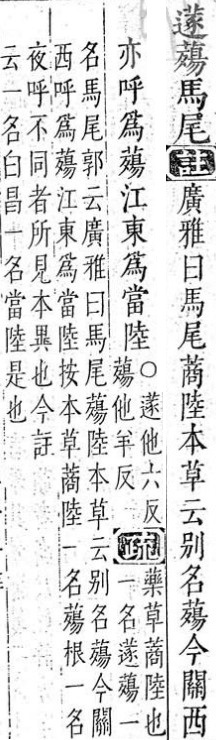 蓫薚馬尾註廣雅曰馬尾蔏陸本草云别名薚今關西
亦呼爲薚江東爲當陸○蓫他六反薚他羊反疏藥草蔏陸也一名蓫薚一
名馬尾郭云廣雅曰馬尾薚陸本草云别名薚今關
西呼爲薚江東爲當陸按本草蔏陸一名薚根一名
夜呼不同者所見本異也今註
云一名白昌一名當陸是也